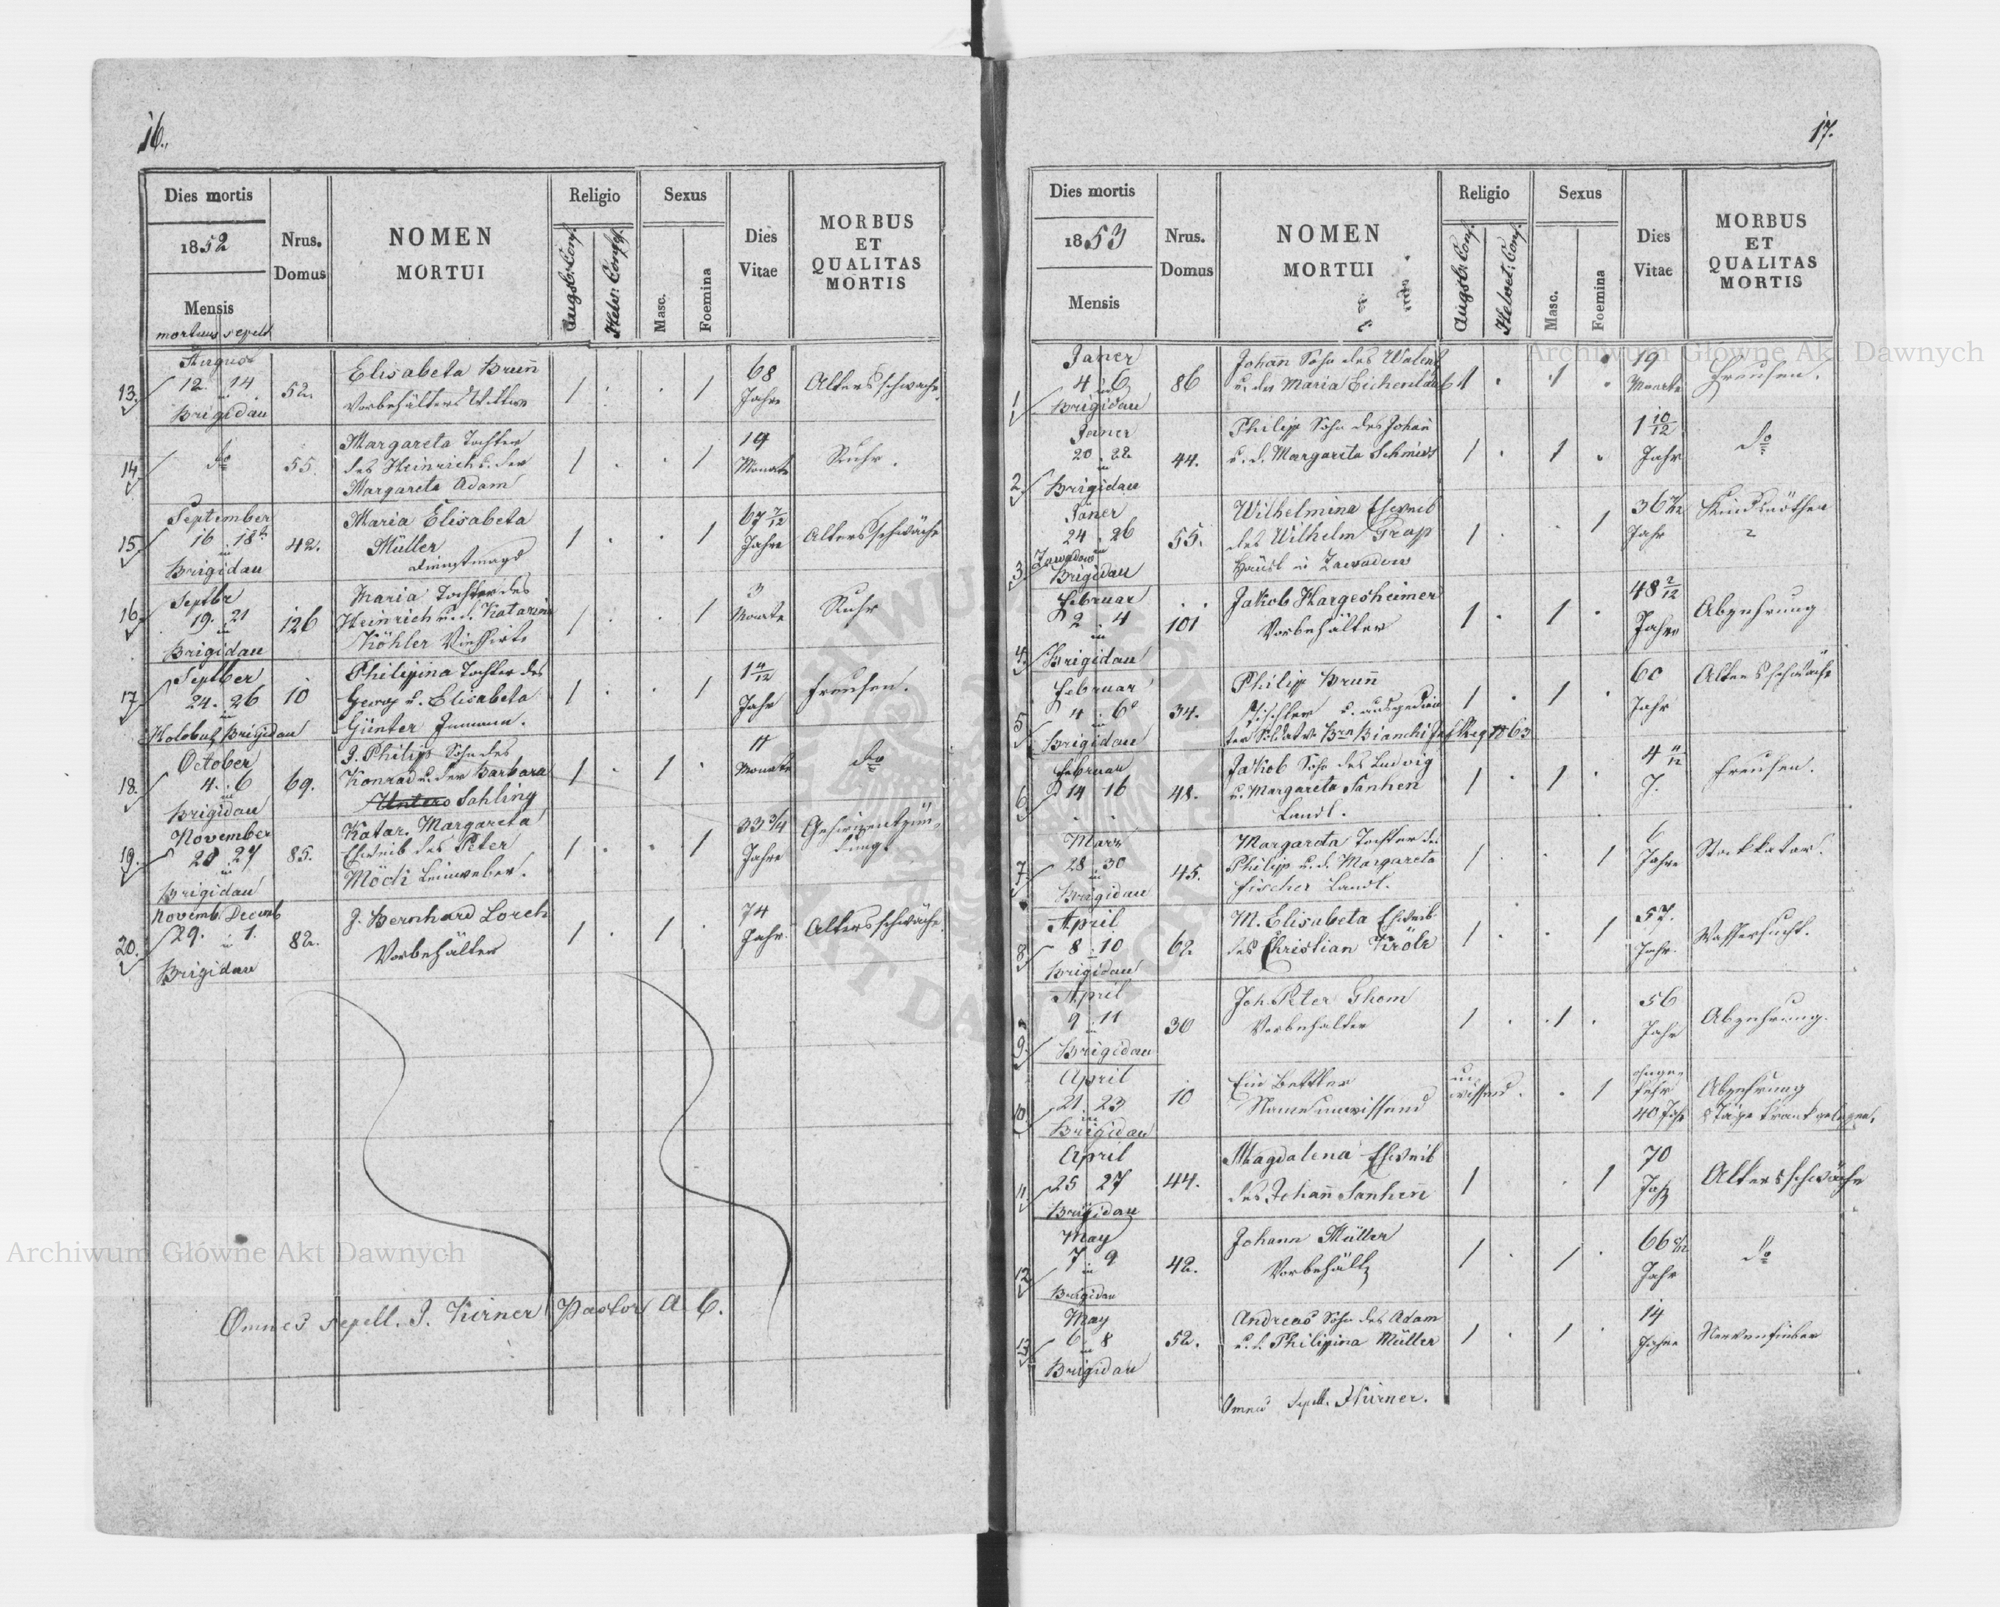 16.
Dies mortis
1852
Mensis
mortuus sepult
Nrus.
Domus
NOMEN
MORTUI
Religio
Augsb: Conf.
Helv: Conf.
Sexus
Masc.
Foemina
Dies
Vitae
MORBUS
ET
QUALITAS
MORTIS
13.
August
12. 14.
in
Brigidau
52.
Elisabeta Brun̄
Vorbehälters Wittwe
1
1
68
Jahre
Altersschwäche
14.
do
55.
Margareta Tochter
des Heinrich u. der
Margareta Adam
1
1
14
Monate
Ruhr.
15.
September
16 18t
in
Brigidau
42.
Maria Elisabeta
Müller
Dienstmagd
1
1
67 7/12
Jahre
Altersschwäche
16.
Septbr
19. 21
in
Brigidau
126
Maria Tochter des
Heinrich u. d. Katarina
Köhler Viehhirte
1
1
3
Monate
Ruhr
17.
Septber
24. 26
in
Kolobutz Brigidau
10
Philippina Tochter des
Georg u. Elisabeta
Günter
1
1
1 4/12
Jahr
Freusen.
18.
October
4. 6
in
Brigidau
69.
J. Philipp Sohn des
Konrad u. der Barbara
Sahling
1
1
11
Monate
do
19.
November
27
in
Brigidau
85.
Katar. Margareta
Eheweib des Peter
Mödi Leinweber.
1
1
33 3/4
Jahre
Gehirnentzün-
dung.
20.
Novemb. Decemb
29. in 1.
Brigidau
82.
J. Bernhard Lorch
Vorbehälter
1
1
74
Jahr.
Altersschwäche.
Omnes sepell. J. Kirner Pastor A. C.
17.
Dies mortis
1853
Mensis
Nrus.
Domus
NOMEN
MORTUI
Religio
Augsb: Conf.
Helvet: Conf.
Sexus
Masc.
Foemina
Dies
Vitae
MORBUS
ET
QUALITAS
MORTIS
1
Janer
4 in 6
Brigidau
86
Johan̄ Sohn des Walent
u. der Maria Eichenlaub
1
1
19
Monate
Freusen.
2
Janer
20. 22
in
Brigidau
44.
Philipp Sohn des Johan̄
u. d. Margareta Schmidt
1
1
1 10/12
Jahr
do
3
Janer
24. 26
in
Zawadow
Brigidau
55.
Wilhelmina Eheweib
des Wilhelm Trapp
Häusl. in Zawadow
1
1
36
Jahr
Kindsnöthen
4.
Februar
2. 4
in
Brigidau
101
Jakob Hargesheimer
Vorbehälter
1
1
48 2/12
Jahre
Abzehrung
5
Februar
4 in 6
Brigidau
34.
Philipp Brun̄
Tischler u. ausgedien
ter Soldat v. Brn Bianchi Inf. Reg. N 63
1
1
60
Jahr
Altersschwäche
6
Februar
14 16
48.
Jakob Sohn des Ludwig
u. Margareta Sanhen
Landl.
1
1
4 11/12
J.
Freusen.
7
Marz
28. 30
in
Brigidau
45.
Margareta Tochter des
Philipp u. d. Margareta
Fischer Landl.
1
1
6
Jahre
Steckkatar.
8
April
8. 10
in
Brigidau
62
M. Elisabeta Eheweib
des Christian Krölr
1
1
57.
Jahr.
Wassersucht.
9
April
9. 11
in
Brigidau
30
Joh. Peter Thom
Vorbehälter
1
1
56
Jahr
Abzehrung.
10
April
21. 23
in
Brigidau
10
Ein Bettler
Name unwissend
un
wissend.
1
ohnge
fehr
40 Jahr
Abzehrung
8 Tage krank gelegen.
11
April
25 27
Brigidau
44.
Magdalena Eheweib
des Johan̄ Sanhen̄
1
1
70
Jahr
Altersschwäche
12
May
7 in 9
Brigidau
42.
Johann Müller
Vorbehält
1
1
66
Jahr
do
13
May
6. 8
in
Brigidau
52.
Andreas Sohn des Adam
u. d. Philippina Müller
1
1
14
Jahre
Nervenfieber
Omnes Sepell. J Kirner.
Archiwum Główne Akt Dawnych
Archiwum Główne Akt Dawnych